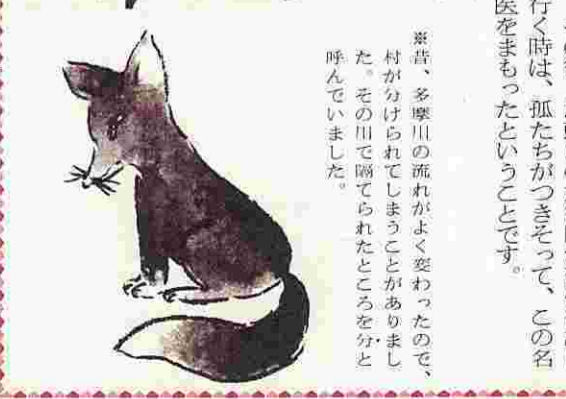 行く時は、狐たちがつきそって、この名
医をまもったということです。
※昔、多摩川の流れがよく変わったので、
村が分けられてしまうことがありまし
た。その川で隔てられたところを分と
呼んでいました。